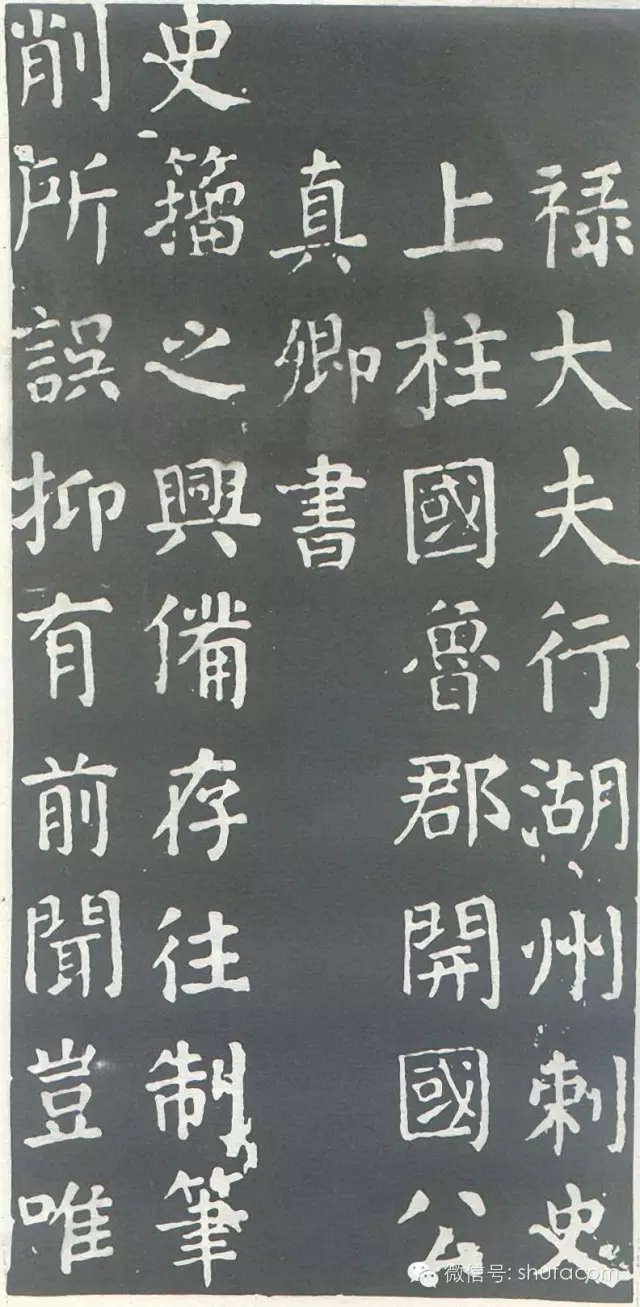 禄大夫行湖州刺史
上柱國魯郡開國公
真卿書
史籀之興備存往制筆
削所誤抑有前聞豈唯
微信号: shufacpm